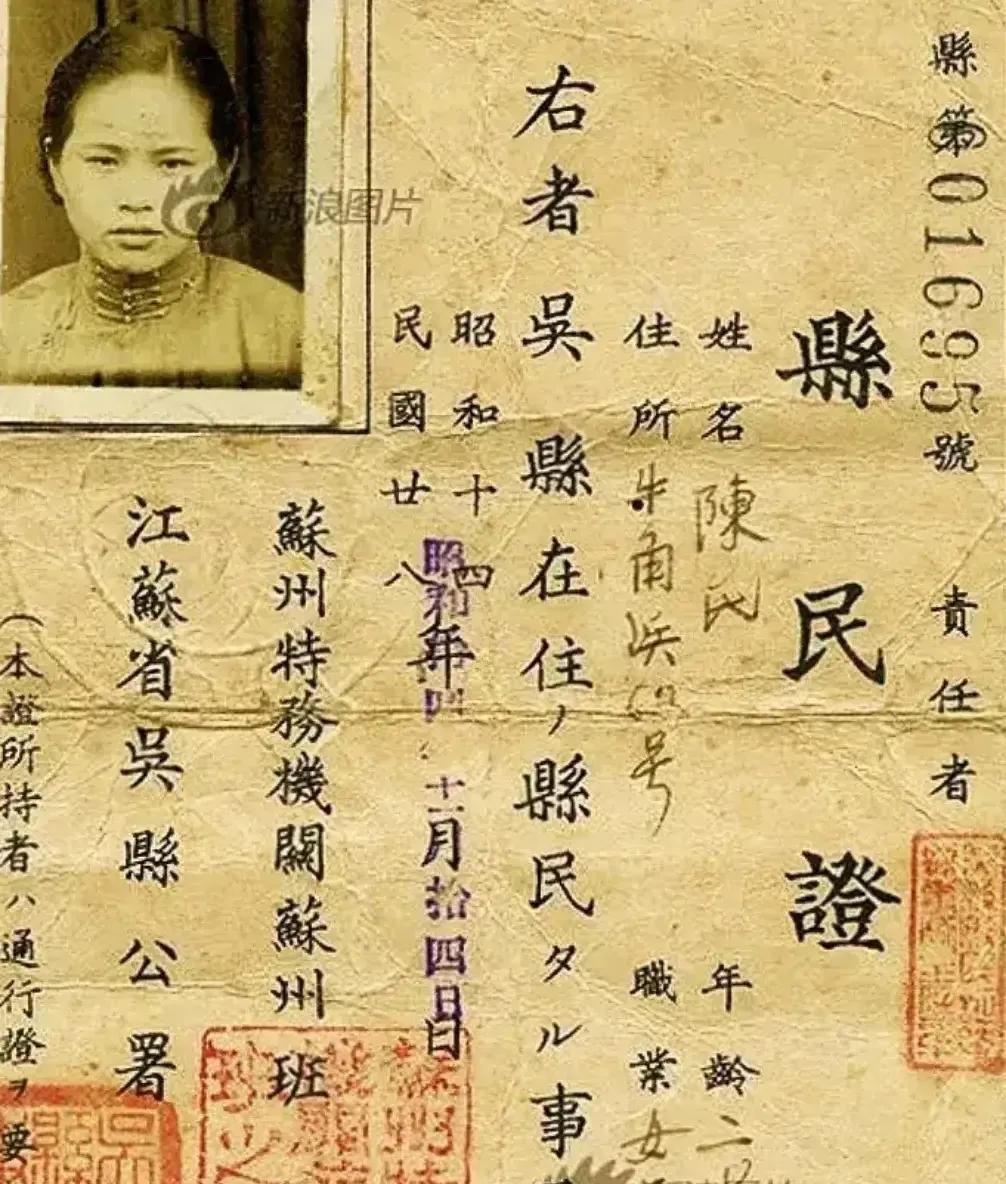 縣第016995號
責任者
縣民證
姓名 陳氏
年齡 二
住所 牛角浜 号
職業 女
右者吳縣在住ノ縣民タル事
昭和十四年
民國廿八年
十一月拾四日
蘇州特務機關蘇州班
江蘇省吳縣公署
(本證所持者ハ通行證ヲ要
新浪图片